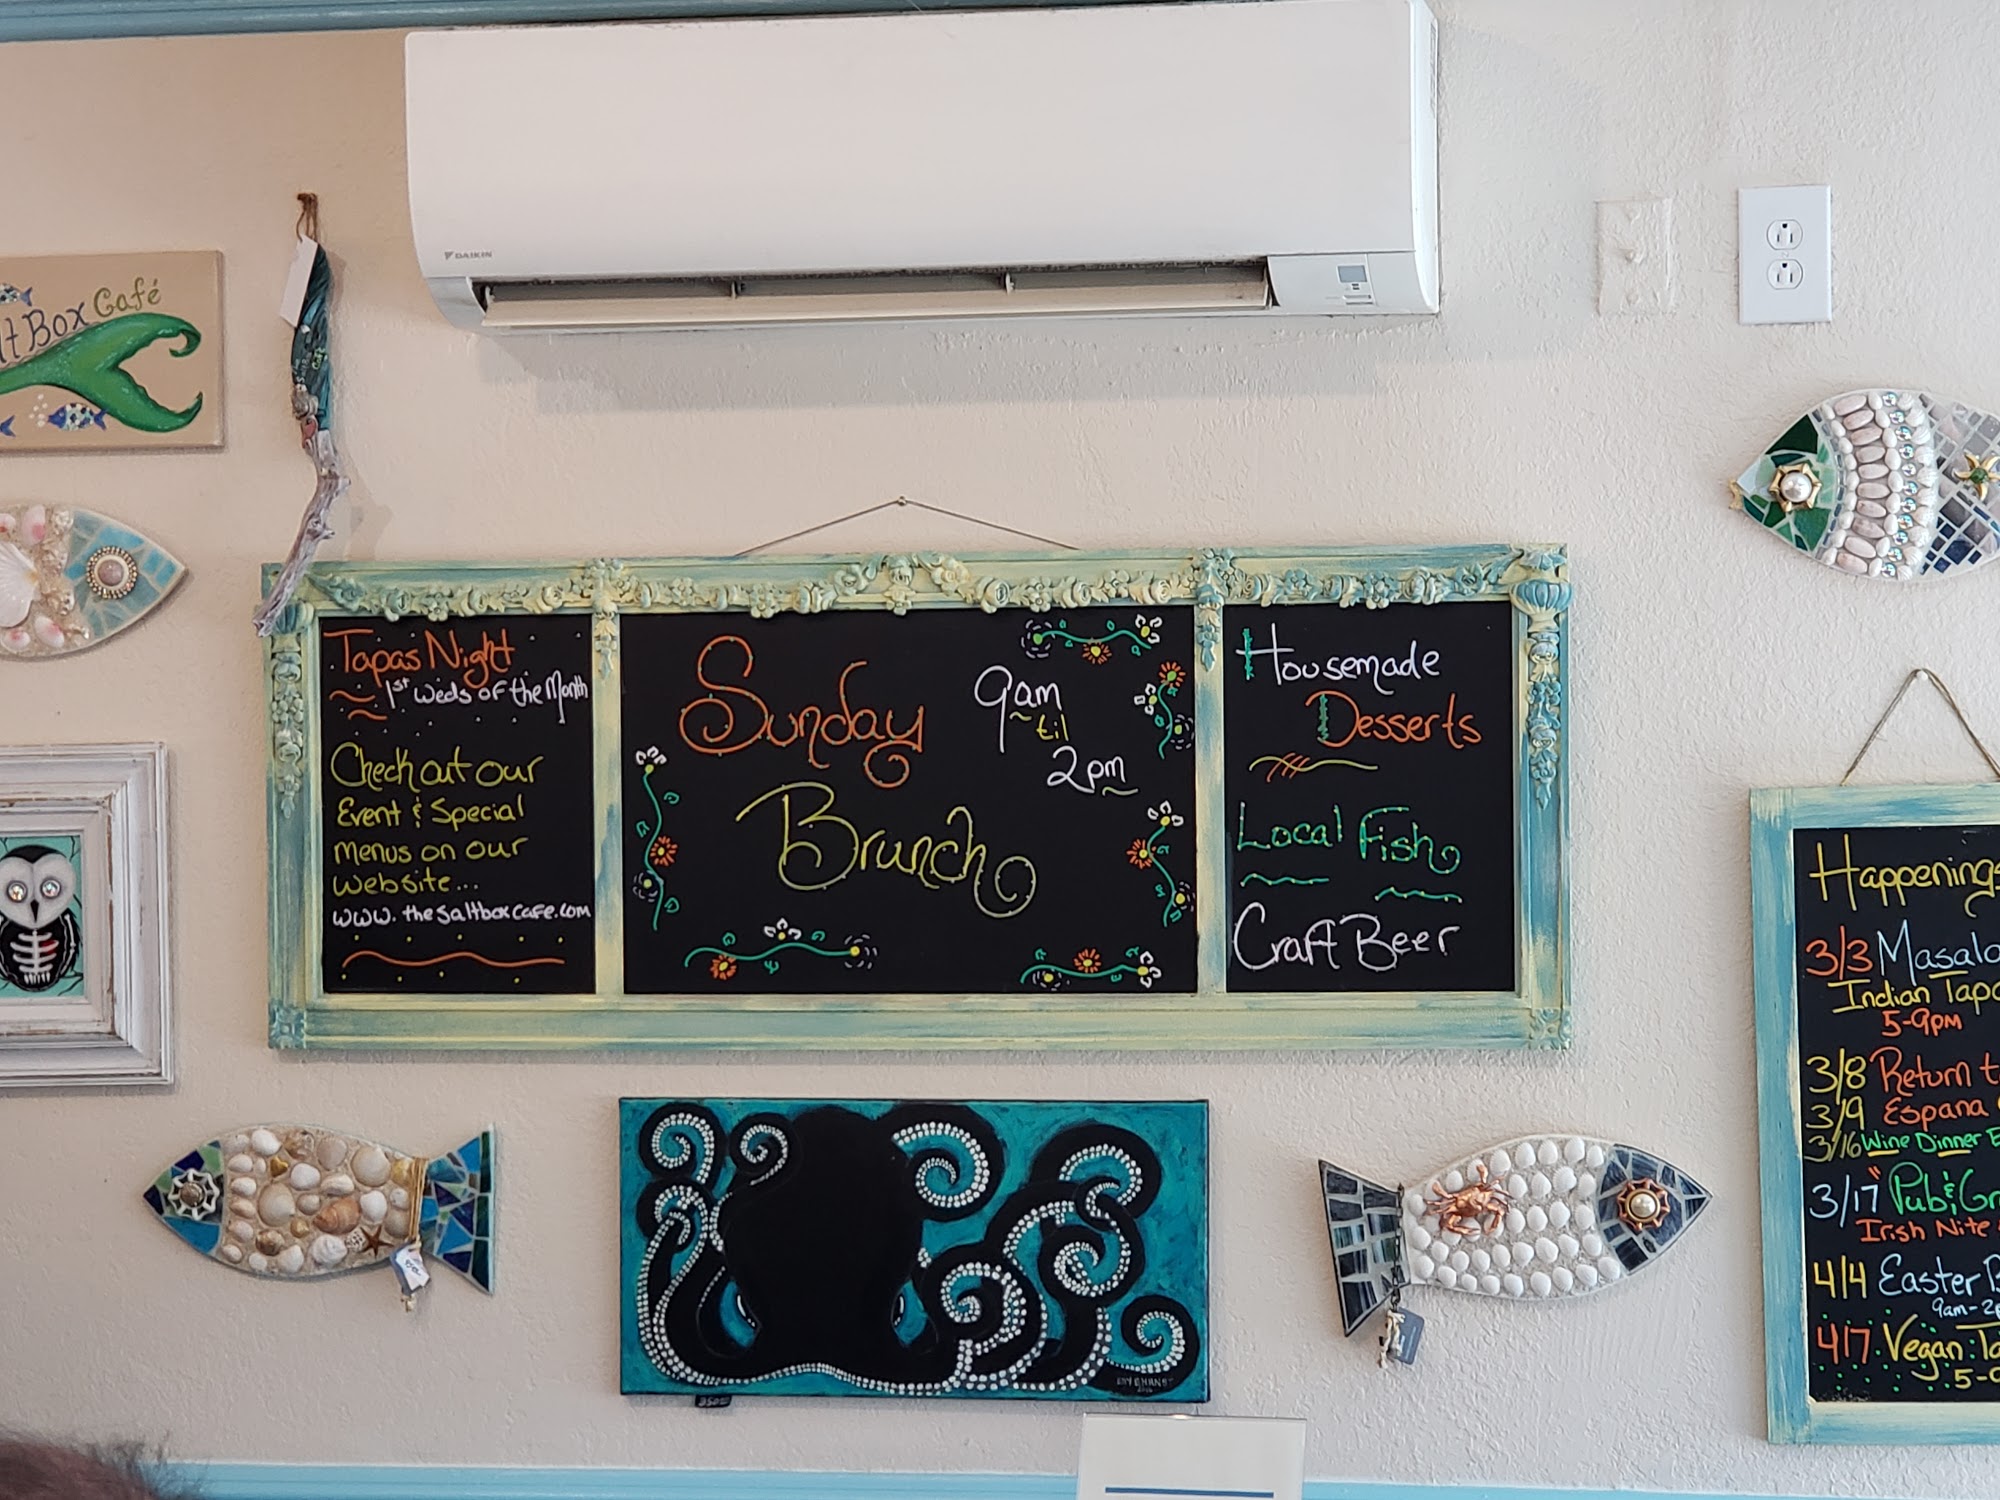 DAIKIN
Box Café
Tapas Night
1st Weds of the Month
Check out our
Event & Special
Menus on our
Website...
www.thesaltboxcafe.com
Sunday
Brunch
9am
til
2pm
Housemade
Desserts
Local Fish
Craft Beer
Happenings
3/3 Masala
Indian
5-9pm
3/8 Return
3/9 Espana
3/16 Wine Dinner
3/17 Pub &
Irish Nite
4/4 Easter
9am-
4/7 Vegan